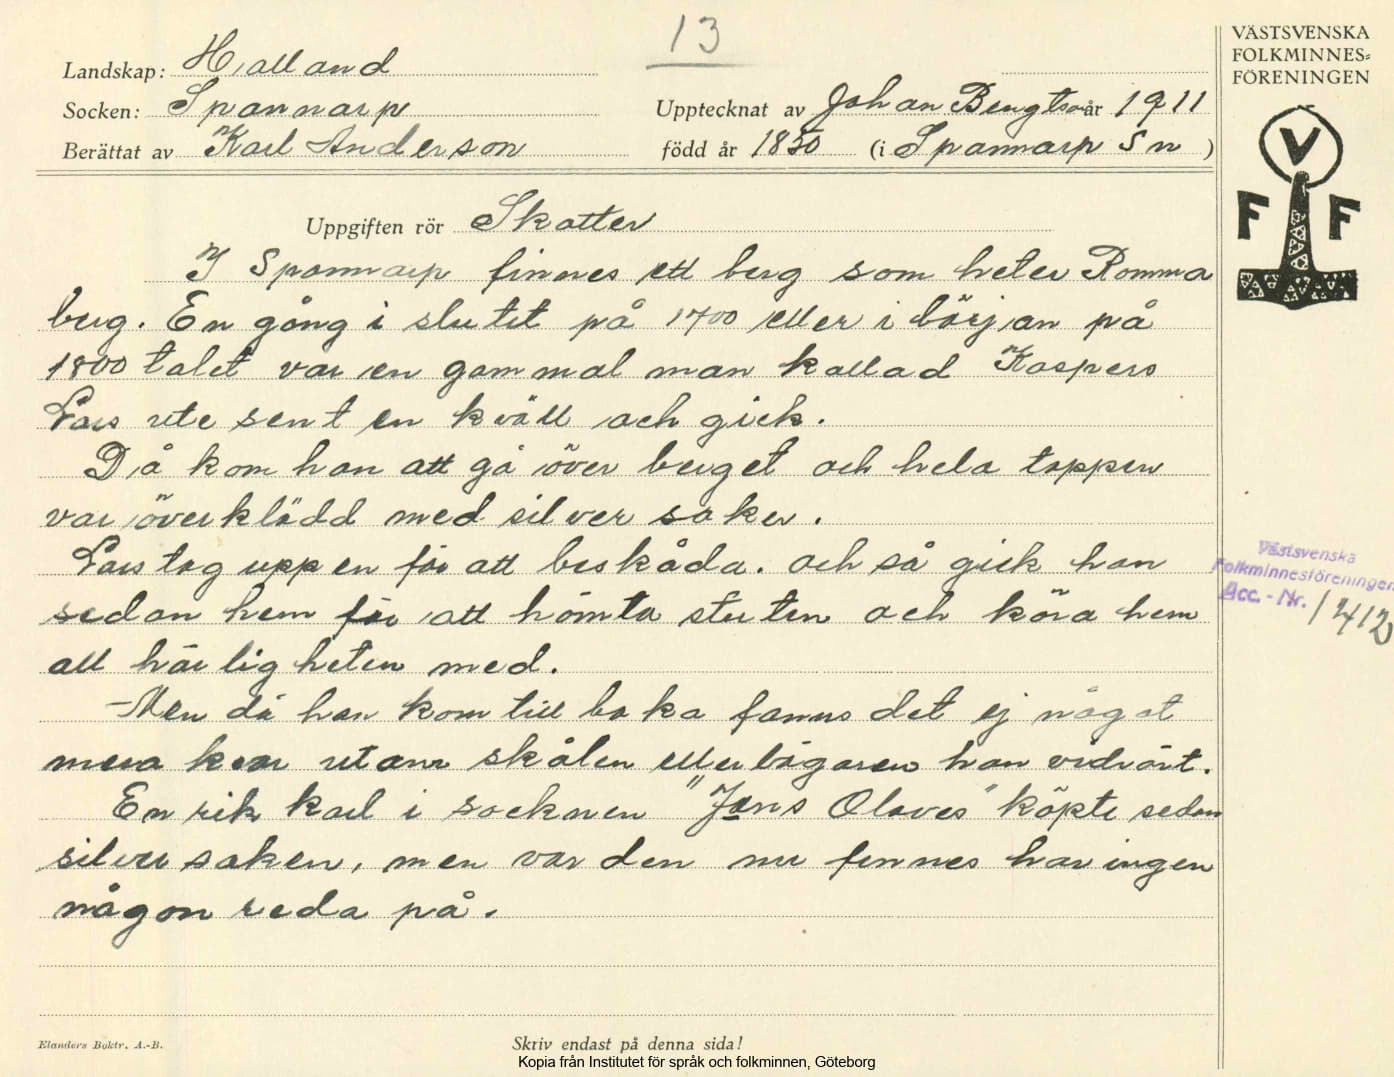 13
VÄSTSVENSKA
FOLKMINNES=
FÖRENINGEN
V
F F
Landskap: Halland
Socken: Spannarp
Upptecknat av Johan Bengtson år 1911
Berättat av Karl Anderson
född år 1850 (i Spannarp Sn )
Uppgiften rör Skatter
I Spannarp finnes ett berg som heter Romma
berg. En gång i slutet på 1700 eller i början på
1800 talet var en gammal man kallad Kaspers
Lars ute sent en kväll och gick.
Då kom han att gå över berget och hela toppen
var överklädd med silver saker.
Lars tog upp en för att beskåda. och så gick han
sedan hem för att hämta stuten och köra hem
all härligheten med.
Men då han kom till baka fanns det ej något
mera kvar utann skålen eller bägaren han vidrört.
En rik karl i socknen "Jens Olaves" köpte sedan
silver saken, men var den nu finnes har ingen
någon reda på.
Västsvenska
Folkminnesföreningen
Acc.-Nr. 1412
Elanders Boktr. A.-B.
Skriv endast på denna sida!
Kopia från Institutet för språk och folkminnen, Göteborg